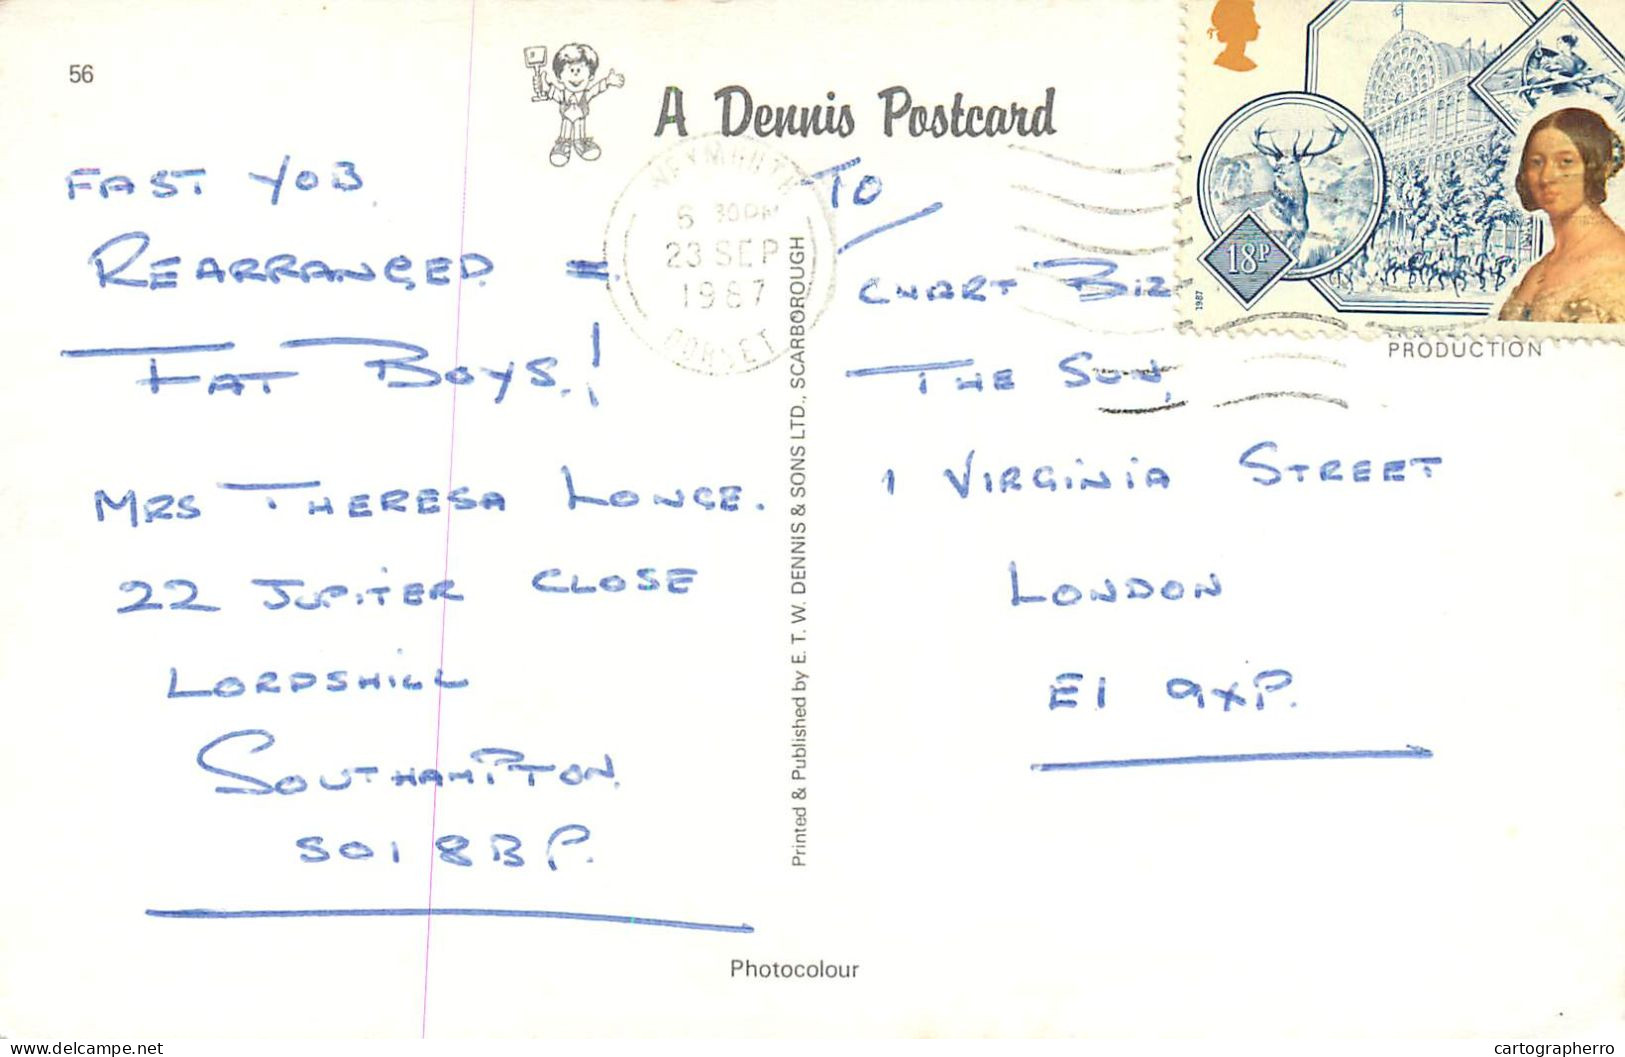 56
A Dennis Postcard
FAST YOB
REARRANGED =
FAT BOYS.!
MRS THERESA LONGE.
22 JUPITER CLOSE
LORDSHILL
SOUTHAMPTON.
SO1 8BP.
WEYMOUTH
6 30PM
23 SEP
1987
DORSET
TO
CHART BIZ
THE SUN,
1 VIRGINIA STREET
LONDON
E1 9XP.
18P
1987
PRODUCTION
Printed & Published by E. T. W. DENNIS & SONS LTD., SCARBOROUGH
Photocolour
delcampe.net
cartographerro